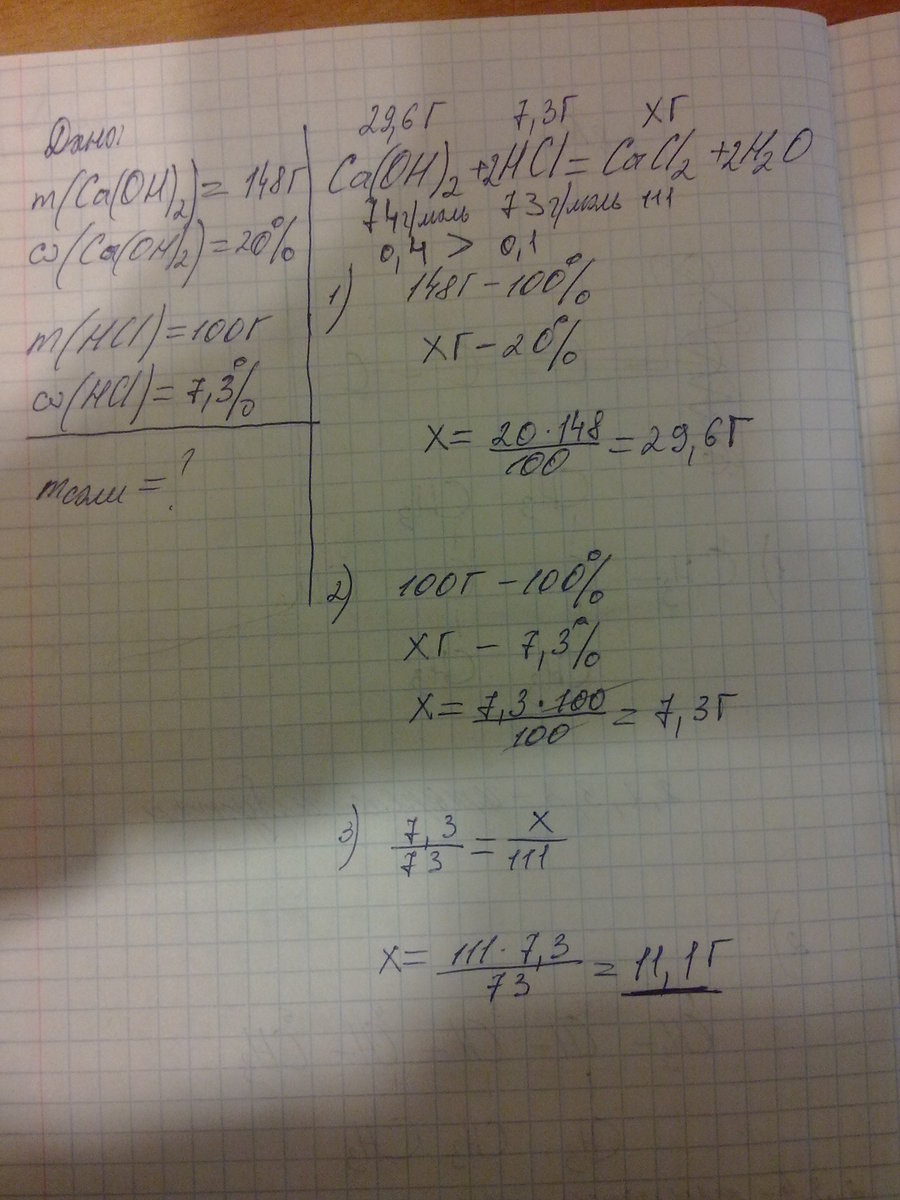 Дано:
m(Ca(OH)₂)= 148г
ω(Ca(OH)₂)=20%
m(HCl)=100г
ω(HCl)= 7,3%
mсоли = ?
29,6г 7,3г xг
Ca(OH)₂ +2HCl= CaCl₂ +2H₂O
74г/моль 73г/моль 111
0,4 > 0,1
1) 148г - 100%
xг - 20%
x= 20·148/100 = 29,6г
2) 100г - 100%
xг - 7,3%
x= 7,3·100/100 = 7,3г
3) 7,3/73 = x/111
x= 111·7,3/73 = 11,1г